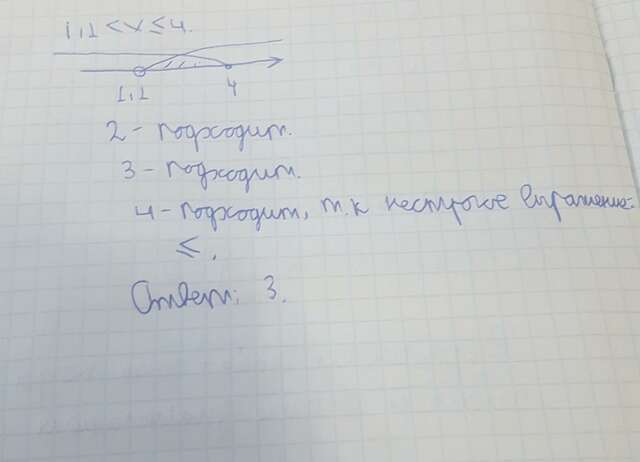 1,1 < x ≤ 4.
1,1 4
2 - подходит.
3 - подходит.
4 - подходит, т.к нестрогое выражение:
≤ .
Ответ: 3.